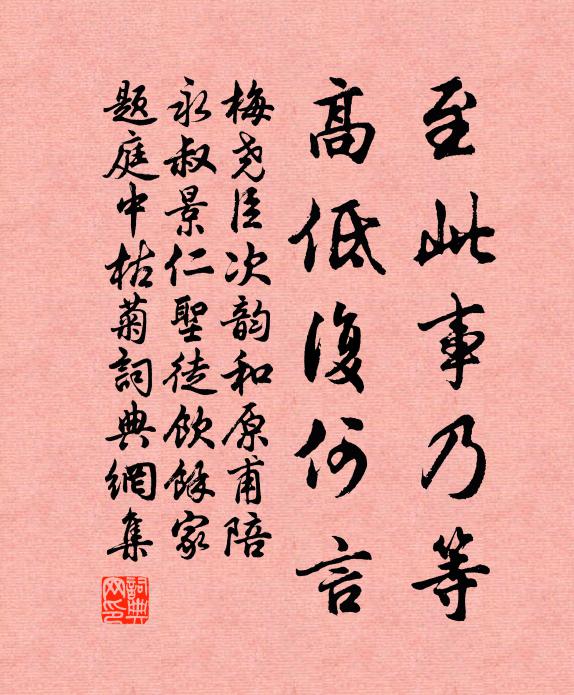 至此事乃等
高低復何言
梅尧臣次韵和原甫陪
永叔景仁聖徒飲餘家
题庭中枯菊詞典網集
詞典网印